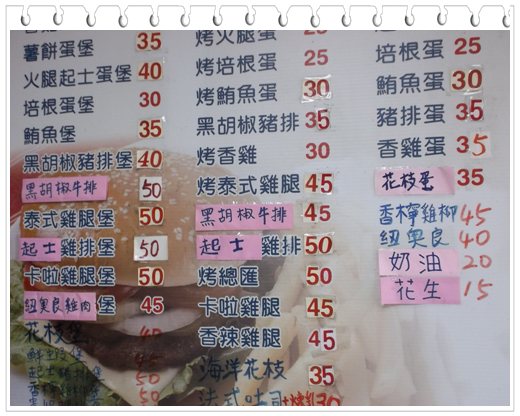 薯餅蛋堡 35
火腿起士蛋堡 40
培根堡 30
鮪魚堡 35
黑胡椒豬排堡 40
黑胡椒牛排 50
泰式雞腿堡 50
起士雞排堡 50
卡啦雞腿堡 50
紐奧良雞肉堡 45
花枝堡 40
起士豬排堡 50
烤火腿蛋
烤培根蛋 25
烤鮪魚蛋 30
黑胡椒豬排 35
烤香雞 30
烤泰式雞腿 45
黑胡椒牛排 45
起士雞排 50
烤總匯 50
卡啦雞腿 45
香辣雞腿 45
海洋花枝 35
法式吐司 30
培根蛋 25
鮪魚蛋 30
豬排蛋 35
香雞蛋 35
花枝蛋 35
香檸雞柳 45
紐奧良 40
奶油 20
花生 15